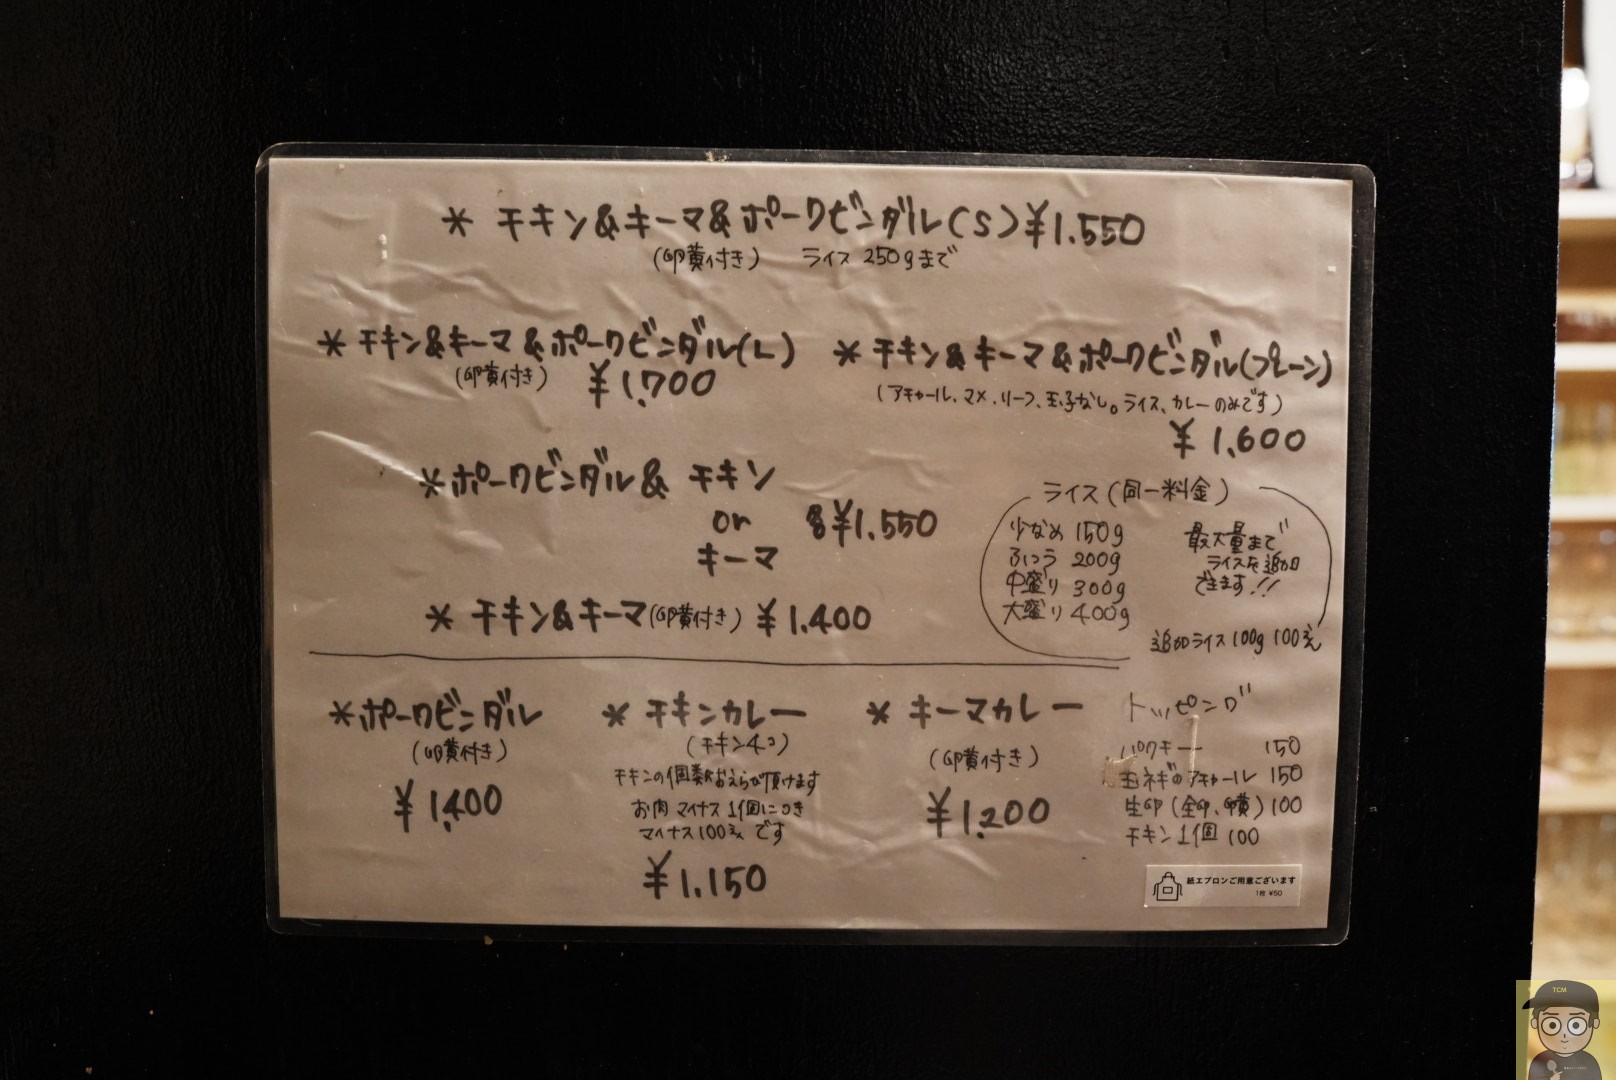 * チキン&キーマ&ポークビンダル(S)¥1.550
(卵黄付き) ライス 250gまで
* チキン&キーマ&ポークビンダル(L)
(卵黄付き) ¥1.700
* チキン&キーマ&ポークビンダル(プレーン)
(アチャール、マメ、リーフ、玉子なし。ライス、カレーのみです)
¥1.600
*ポークビンダル& チキン
or 各¥1.550
キーマ
* チキン&キーマ(卵黄付き) ¥1.400
ライス(同一料金)
少なめ 150g
ふつう 200g
中盛り 300g
大盛り 400g
最大量まで
ライスを追加
できます!!
追加ライス100g 100えん
*ポークビンダル
(卵黄付き)
¥1.400
* チキンカレー
(チキン4コ)
チキンの個数おえらび頂けます
お肉 マイナス 1個につき
マイナス100えん です
¥1.150
* キーマカレー
(卵黄付き)
¥1.200
トッピング
パクチー 150
玉ネギのアチャール 150
生卵(全卵、卵黄)100
チキン1個 100
紙エプロンご用意ございます
1枚 ¥50
TCM